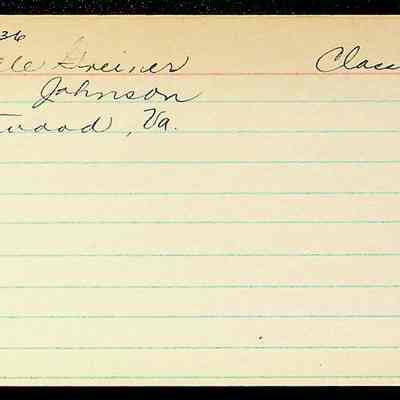 36
le Greiner Class
Johnson
twood, Va.